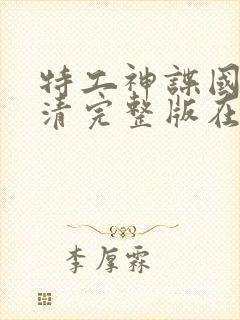 特工神諜國
清完整版在
李厚霖